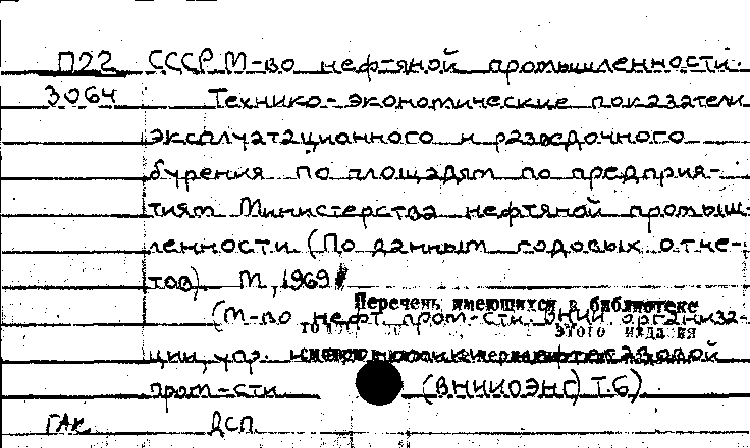 П22 СССР. М-во нефтяной промышленности.
3064 Технико-экономические показатели
эксплуатационного и разведочного
бурения по площадям по предприя-
тиям Министерства нефтяной промыш-
ленности. (По данным годовых отче-
тов). М., 1969
Перечень имеющихся в библиотеке
(М-во нефт. пром-сти. ВНИИ организа-
этого издания
ции, упр. газовой
пром-сти (ВНИИОЭНГ) Т.6).
ГАК ДСП.